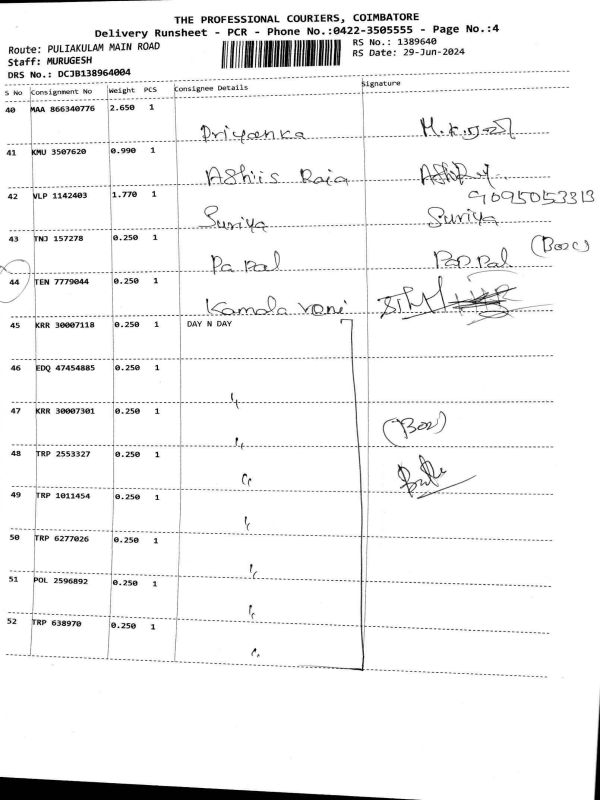 THE PROFESSIONAL COURIERS, COIMBATORE
Delivery Runsheet - PCR - Phone No.:0422-3505555 - Page No.:4
Route: PULIAKULAM MAIN ROAD
RS No.: 1389640
Staff: MURUGESH
RS Date: 29-Jun-2024
DRS No.: DCJB138964004
S No Consignment No Weight PCS Consignee Details Signature
40 MAA 866340776 2.650 1
Priyanka
41 KMU 3507620 0.990 1
Ashiis Raja
42 VLP 1142403 1.770 1
9095053313
Suriya Suriya
43 TNJ 157278 0.250 1
(Box)
Pa pal Pappal
44 TEN 7779044 0.250 1
Kamala veni
45 KRR 30007118 0.250 1 DAY N DAY
46 EDQ 47454885 0.250 1
"
47 KRR 30007301 0.250 1
(Box)
"
48 TRP 2553327 0.250 1
"
49 TRP 1011454 0.250 1
"
50 TRP 6277026 0.250 1
"
51 POL 2596892 0.250 1
"
52 TRP 638970 0.250 1
"